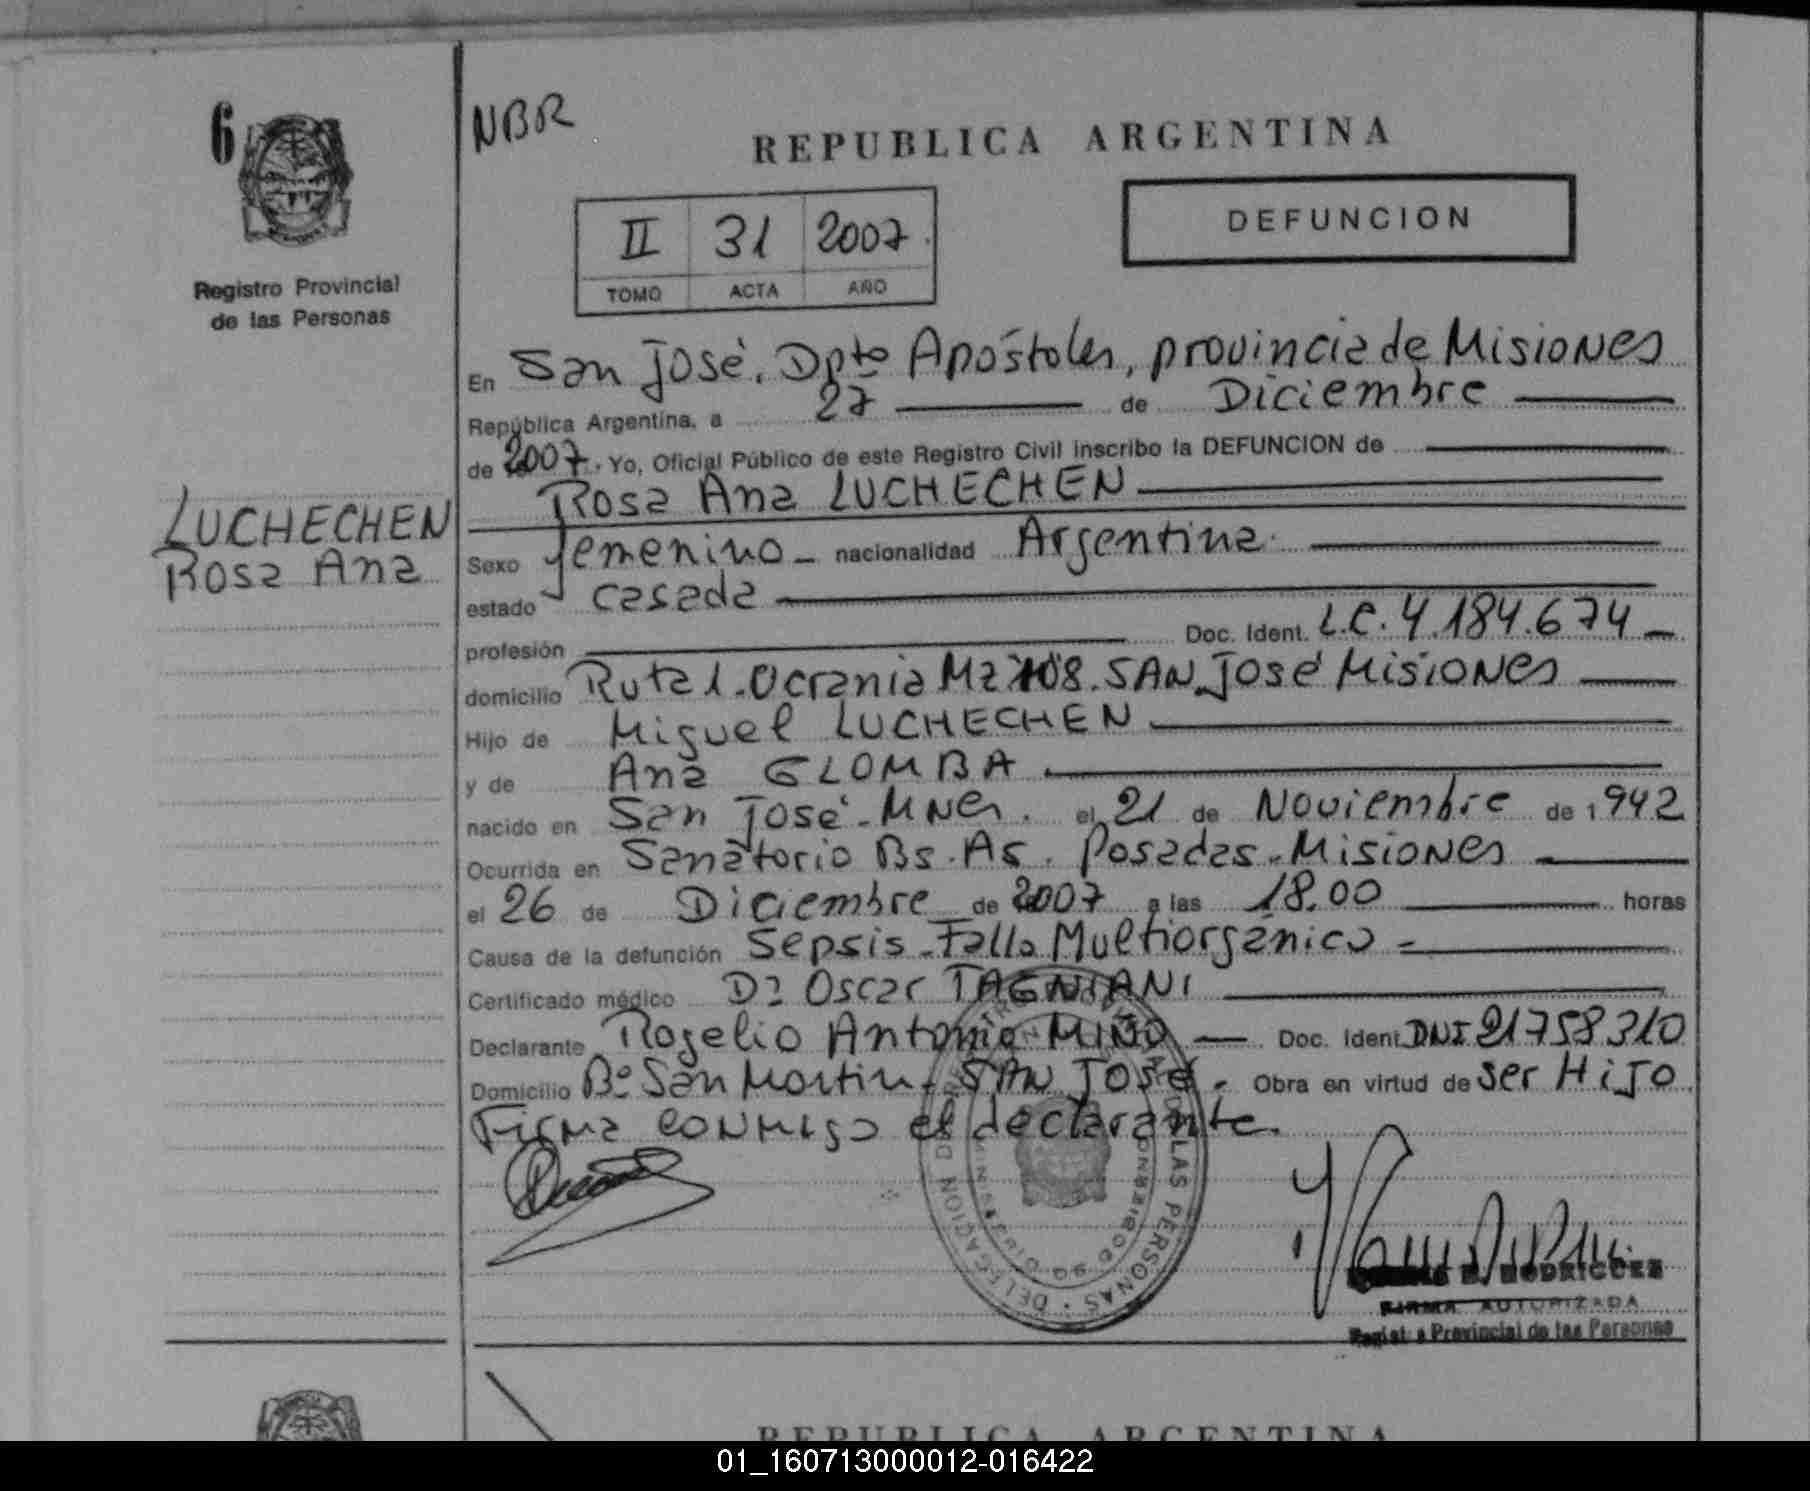 6
NBR
REPUBLICA ARGENTINA
II 31 2007.
TOMO ACTA AÑO
DEFUNCION
Registro Provincial
de las Personas
LUCHECHEN
Rosa Ana
En San José. Dpto Apóstoles, provincia de Misiones
República Argentina, a 27 de Diciembre
de 2007. Yo, Oficial Público de este Registro Civil inscribo la DEFUNCION de
Rosa Ana LUCHECHEN
Sexo femenino - nacionalidad Argentina.
estado casada
profesión Doc. Ident. L.C. 4.184.674
domicilio Ruta 1. Ucrania Mz 108. SAN José Misiones
Hijo de Miguel LUCHECHEN
y de Ana GLOMBA
nacido en San José - Mnes. el 21 de Noviembre de 1942
Ocurrida en Sanatorio Bs. As. Posadas - Misiones
el 26 de Diciembre de 2007 a las 18.00 horas
Causa de la defunción Sepsis - Falla Multiorgánica -
Certificado médico Dr Oscar TAGNIANI
Declarante Rogelio Antonio MIÑO Doc. Ident DNI 21758310
Domicilio Bº San Martin - SAN José. Obra en virtud de ser HIJO
Firma conmigo el declarante.
DELEGACION DE LAS PERSONAS
MINISTERIO DE GOBIERNO
RODRIGUEZ
FIRMA AUTORIZADA
Registro Provincial de las Personas
REPUBLICA ARGENTINA
01_160713000012-016422